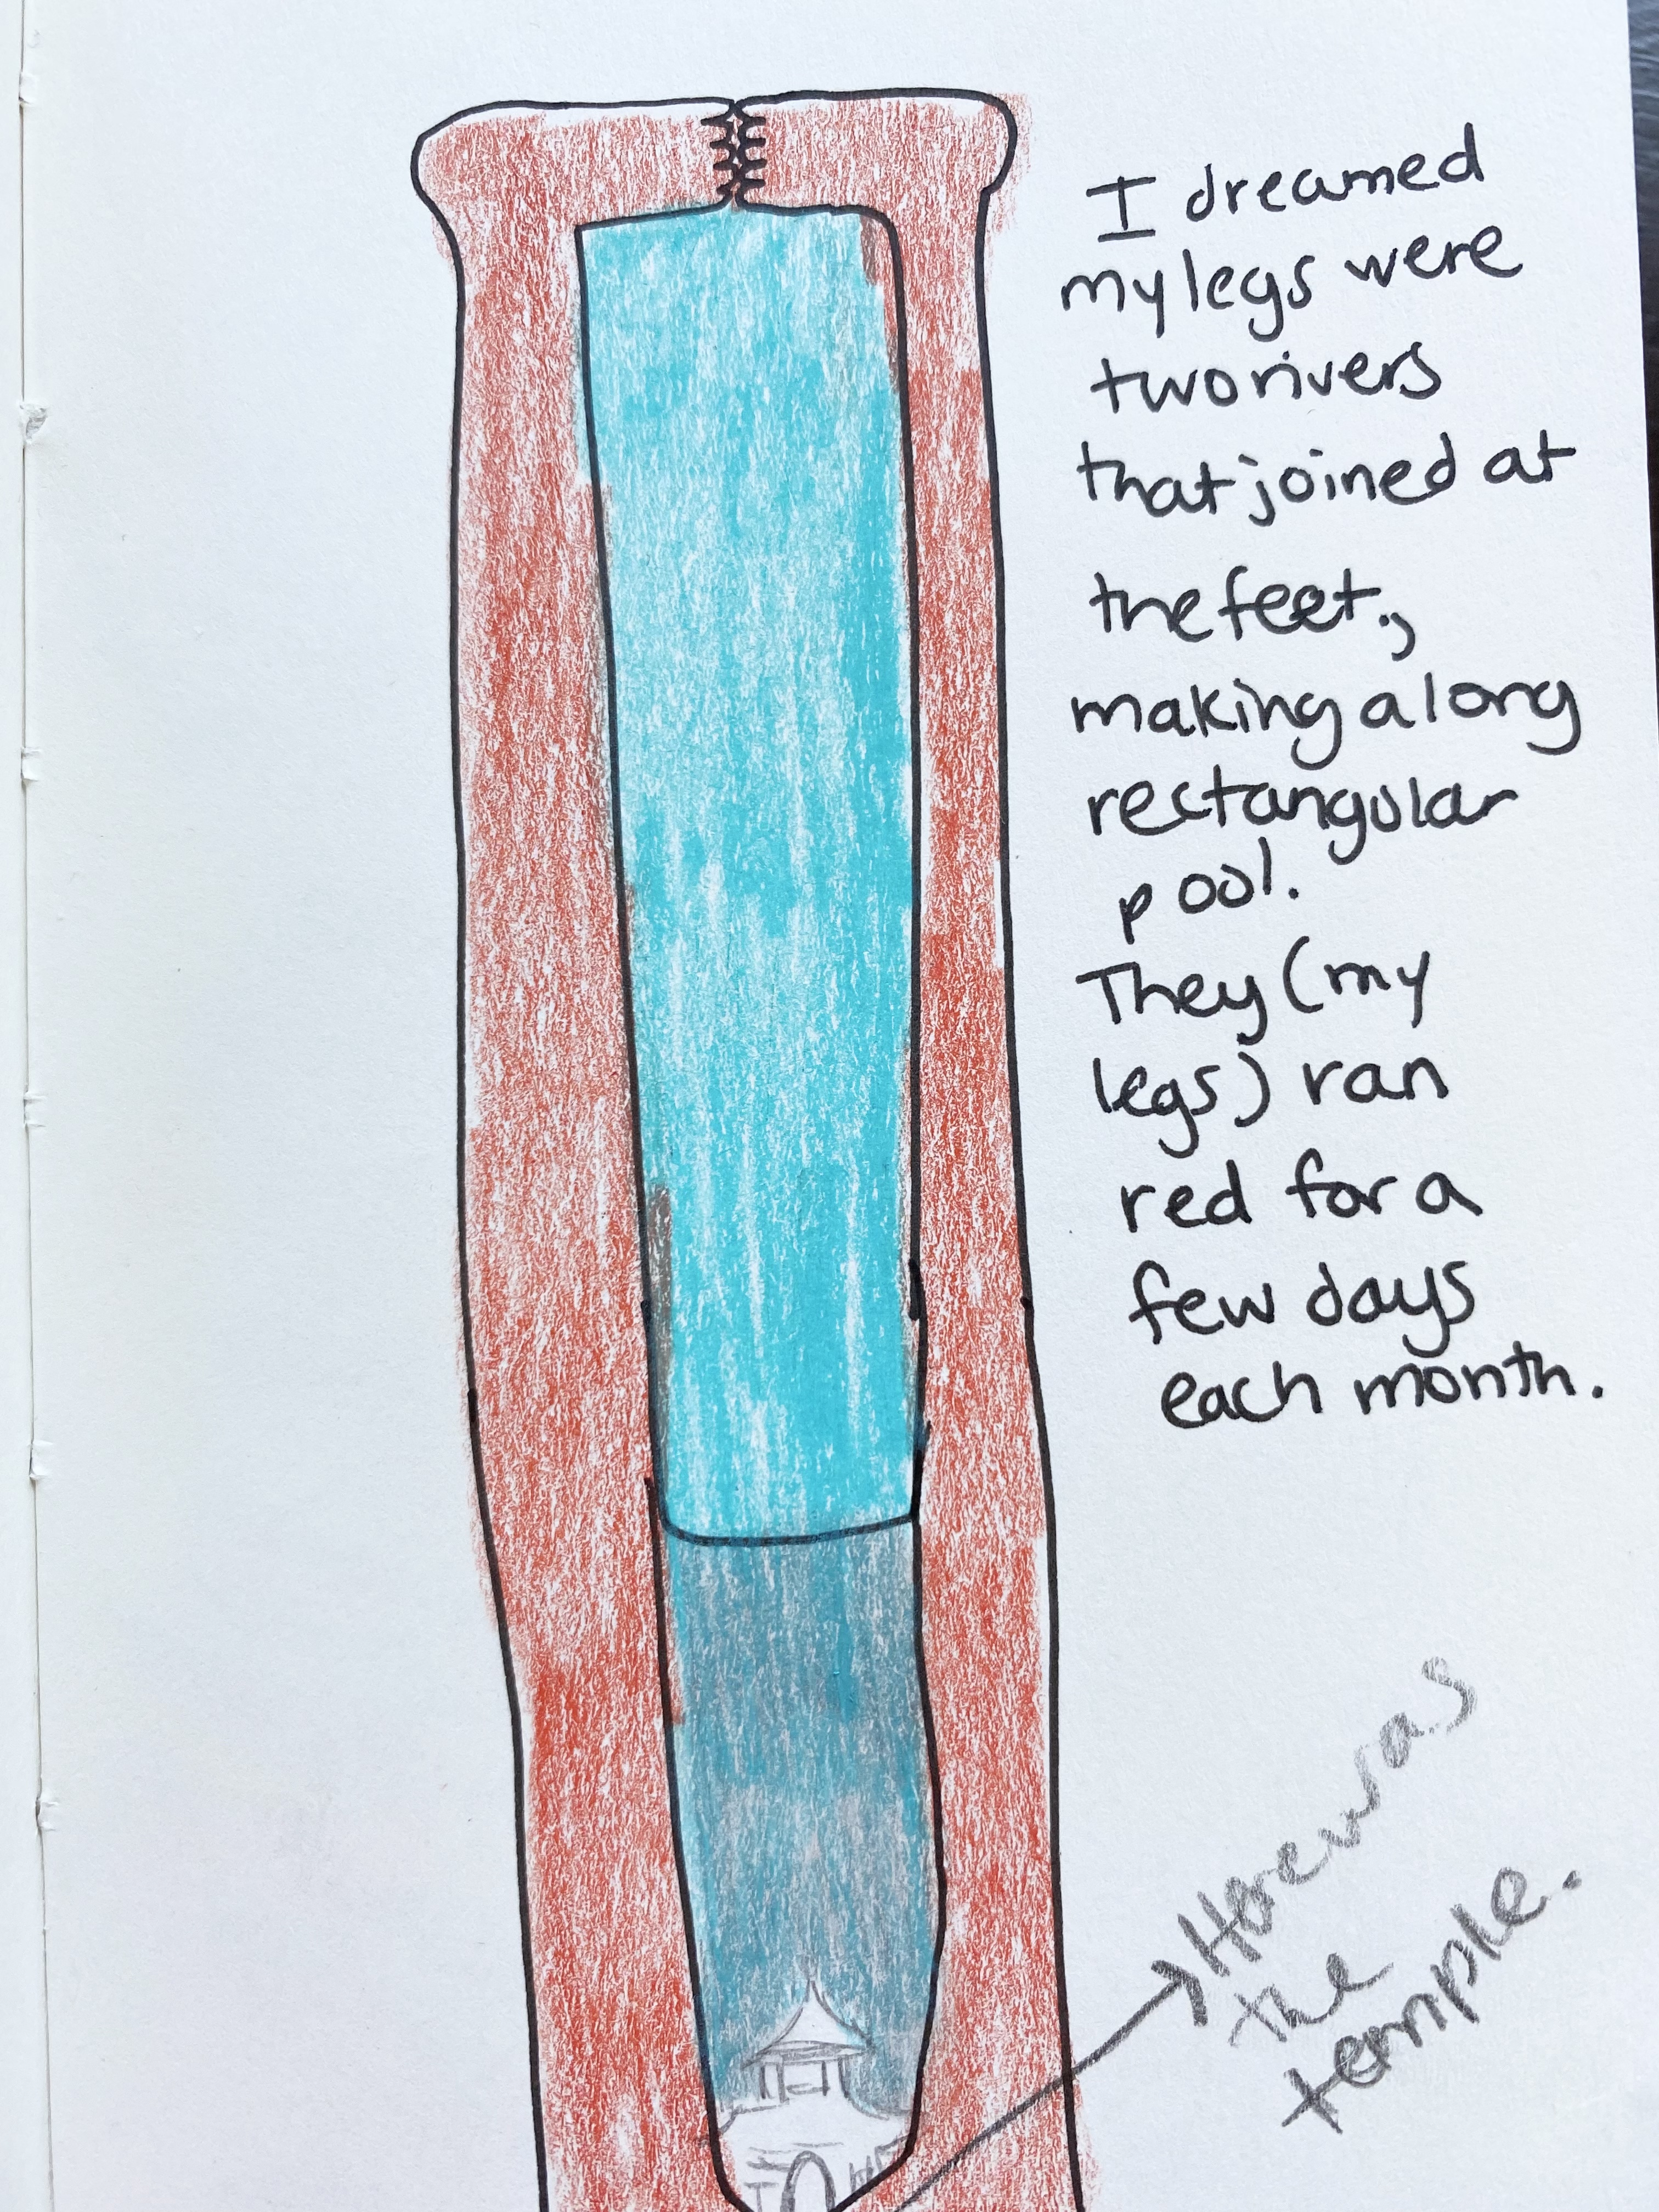 I dreamed
my legs were
two rivers
that joined at
the feet.,
making a long
rectangular
pool.
They (my
legs) ran
red for a
few days
each month.
Here was
the
temple.